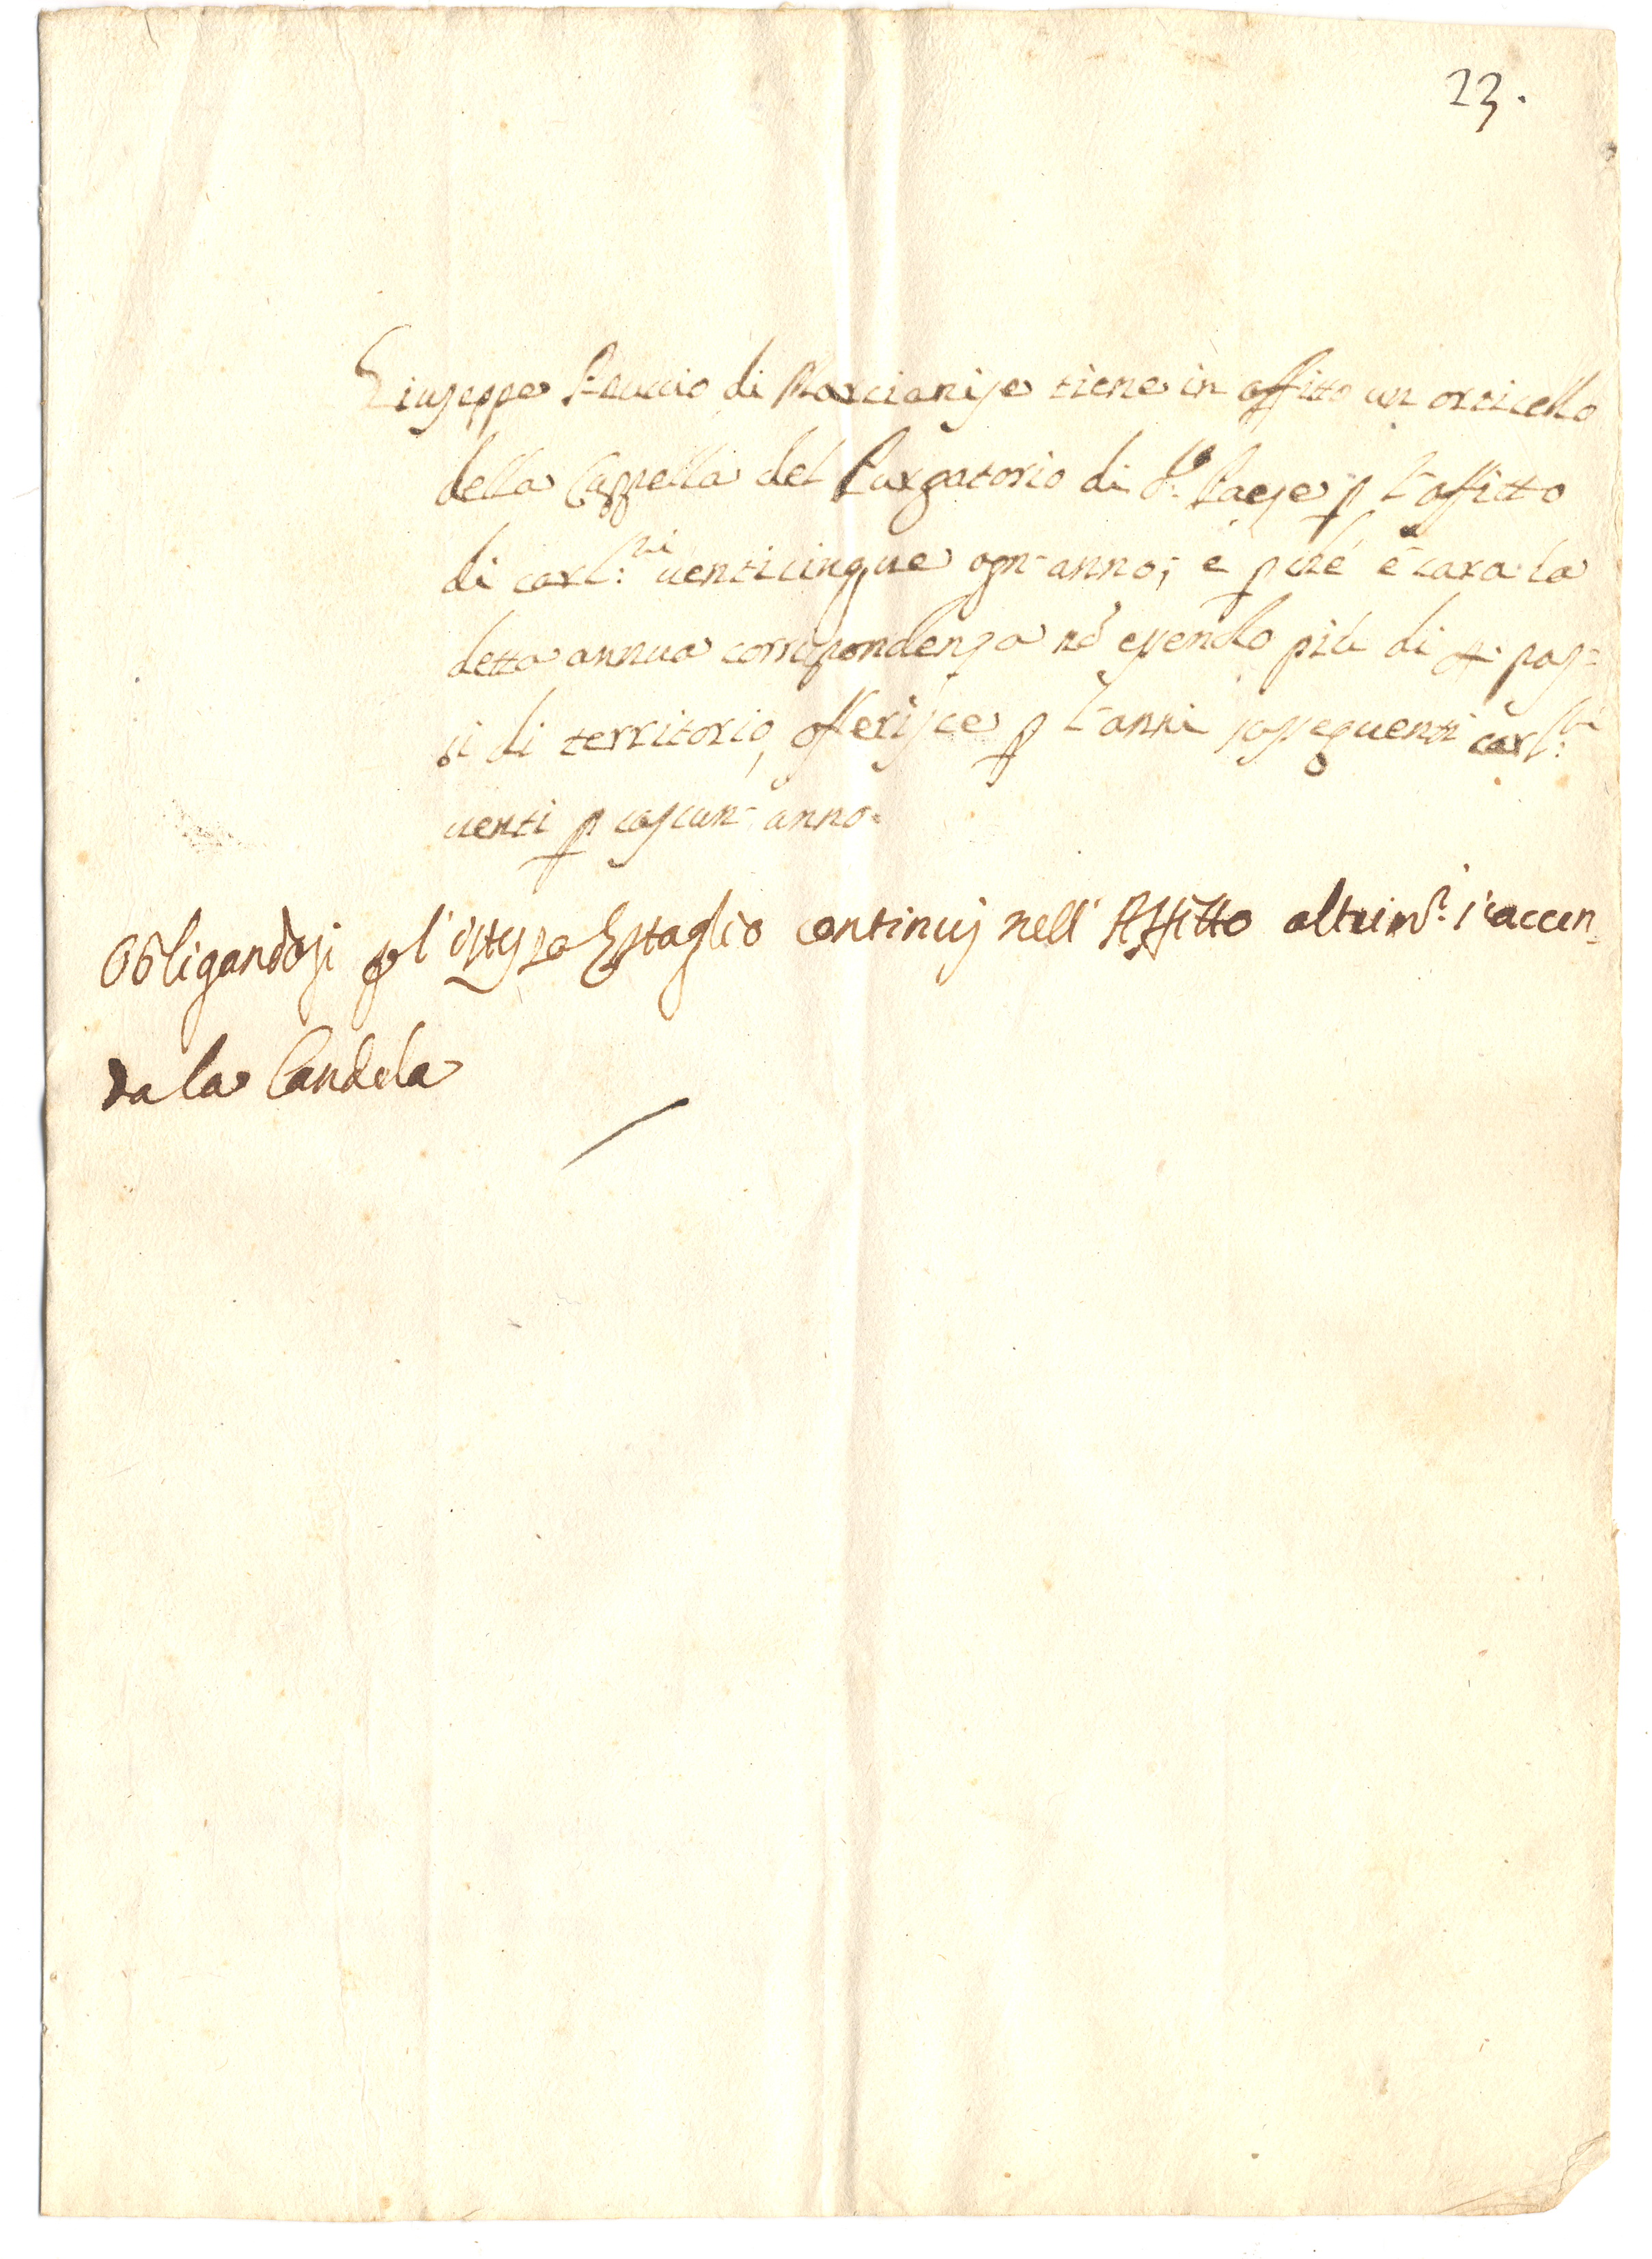 23.
Giuseppe di Marcianise tiene in affitto un orticello
della Cappella del Purgatorio di d.o Paese p l'affitto
di carl:ni venticinque ogn'anno; e pché è cara la
detta annua corrispondenza nō essendo più di pas=
si di territorio, offerisce p l'anni susseguenti carl:ni
venti p ciascun'anno.
Obligandosi p l'istesso Estaglio continuj nell'Affitto altrim.e s'accen
da la Candela